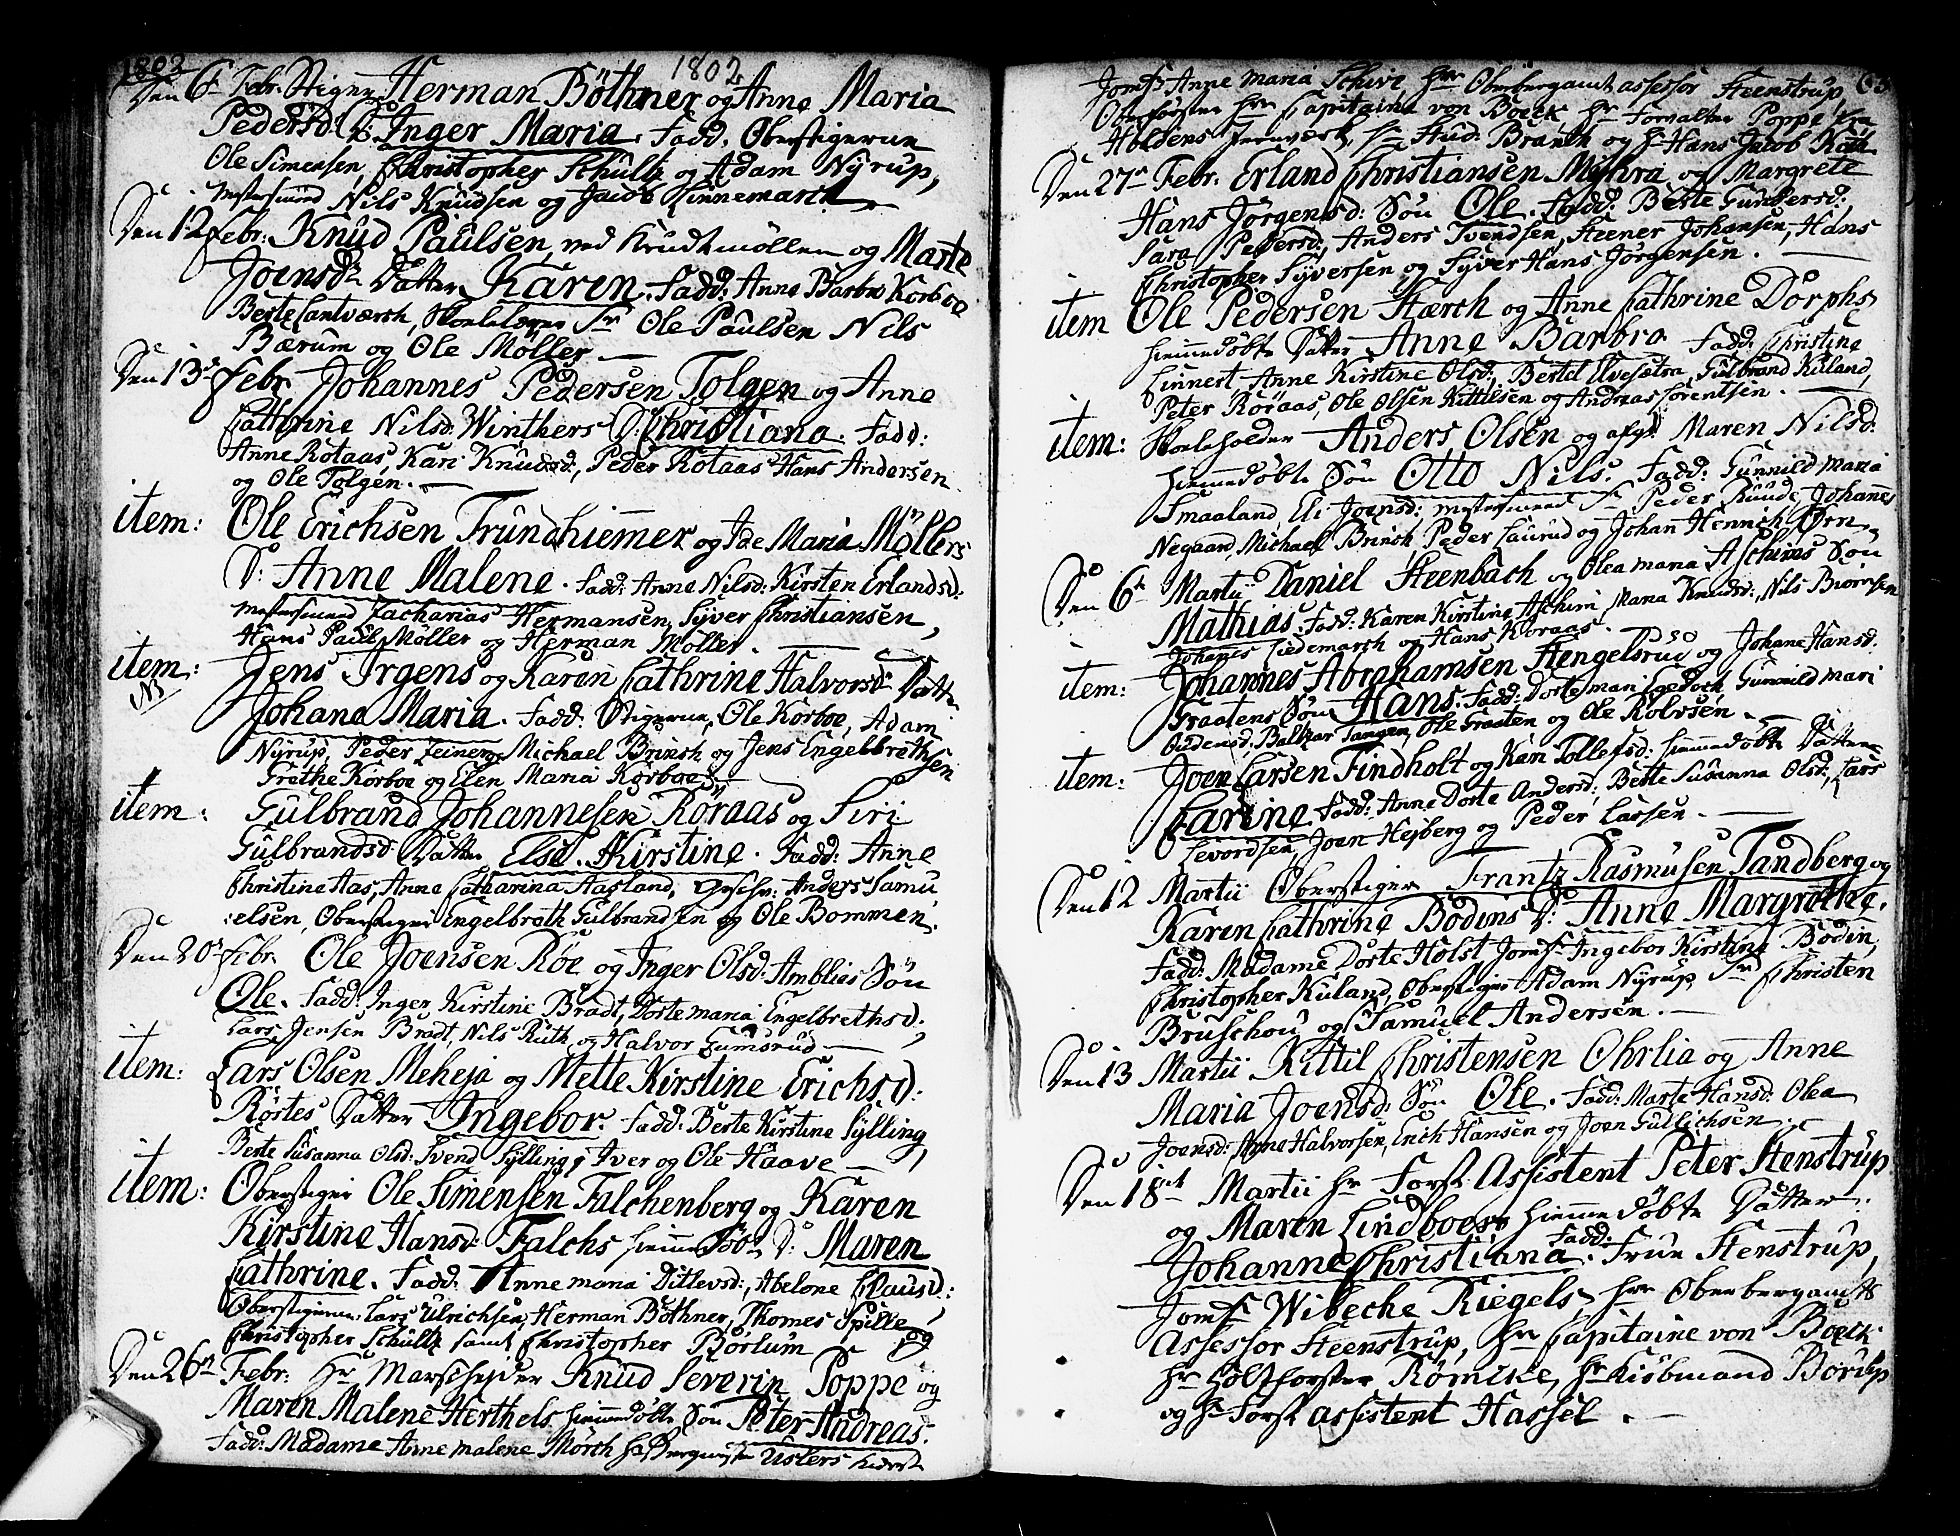 1802
1802
Den 6te Febr. Stiger Herman Böthner og Anne Maria
Pedersd: D. Inger Maria. Fadd: Oberstigerne
Ole Simensen, Christopher Schultz og Adam Nÿrup,
Mestersmed Nils Knudsen og Jacob Linnemarch
Den 12 Febr: Knud Paulsen ved Krudtmöllen og Marte
Joensdr Datter Karen. Fadd: Anne Barbro Korboe
Berte Lantværch, Skoelelærer Sr Ole Paulsen Nils
Bærum og Ole Möller.
Den 13de Febr Johannes Pedersen Tolgen og Anne
Cathrine Nilsd: Winthers D: Christiana. Fadd:
Anne Rotaas, Kari Knudsd:, Peder Rotaas Hans Andersen
og Ole Tolgen.
item: Ole Erichsen Trundhiemmer og Ide Maria Möllers
D: Anne Malene. Fadd: Anne Nilsd: Kirsten Erlandsd:
Mestersmed Zacharias Hermansen, Syver Christiansen,
Hans Paul Möller og Herman Möller.
item: Jens Irgens og Karen Cathrine Halvorsd: Datter
NB
Johane Maria. Fadd: Stigerne, Ole Korboe, Adam
Nÿrup, Peder Zeiner, Michael Brinch og Jens Engelbrethsen
Grethe Korboe og Elen Maria Korboe.
item: Gulbrand Johannesen Röraas og Siri
Gulbrandsd Datter Else Kirstine. Fadd: Anne
Christine Aas, Anne Catharina Aasland, Geschw: Anders Samu
:elsen, Oberstiger Engelbreth Gulbrandsen og Ole Bommen.
Den 20de Febr. Ole Joensen Röe og Inger Olsd: Amblies Sön
Ole. Fadd: Inger Kirstine Bradt, Dortemaria Engelbrethsd:,
Lars Jensen Bradt, Nils Ruth og Halvor Gumsrud
item: Lars Olsen Meheja og Mette Kirstine Erichsd:
Röstes Datter Ingebor. Fadd: Berte Kirstine Sylling,
Berte Susanna Olsd: Svend Sylling, Iver og Ole Haave
item: Oberstiger Ole Simensen Falchenberg og Karen
Kirstine Hansd: Falchs hiemmedöbt D: Maren
Cathrine. Fadd: Anne maria Ditlevsd:, Abelone Clausd:
Oberstigerne, Lars Ulrichsen, Herman Böthner, Thomes Spilleÿ
Christopher Schultz samt Christopher Börlum
Den 26de Febr. Hr Marscheider Knud Severin Poppe og
Maren Malene Herthels hiemmedöbte Sön Peter Andreas.
Fadd: Madame Anne malene Mörch
Jomfr Anne Maria Schive, Hr Oberbergamt assessor Steenstrup,
Oberförster Hr Capitaine von Boeck Hr Forvalter Poppe fra
Holdens Jernværk, Hr Stud: Branth og Hr Hans Jacob
Den 27de Febr. Erland Christiansen Myhra og Margrete
Hans Jörgensd: Sön Ole. Fadd: Berte Gunbersd:,
Sara Pedersd:, Anders Svendsen, Steener Johansen, Hans
Christopher Syversen og Syver Hans Jörgensen.
item Ole Pedersen Stærch og Anne Cathrine Dorphs
hiemmedöbte Datter Anne Barbro Fadd: Christine
Linnert Anne Kirstine Olsd:, Bertel Elvesætra, Gulbrand Kuland,
Peter Röraas, Ole Olsen Kittilsen og Andreas Sörentsen.
item: Skoleholder Anders Olsen og afgd. Maren Nilsd:
hiemmedöbte Sön Otto Nils. Fadd: Gunnild Maria
Smaaland, Eli Joensd: mestersmed Sr Peder Ruud, Johannes
Negaard, Michael Brinch Peder Laurud og Johan Hennich Örn
Den 6te Martii Daniel Steenbach og Olea maria Aschims Sön
Mathias. Fadd: Karen Kirstine Aschim, Maria Knudsd:, Nils Biörnsen
Johanes Lidemarch og Hans Koraas.
item: Johannes Abrahamsen Hengelsrud og Johane Hansd:
Graatens Sön Hans. Fadd: Dorte mari Egedock, Gunnild Mari
Baltzar Tangen, Ole Graaten og Ole Rolvsen.
item: Joen Larsen Findholt og Kari Tollefsd: hiemmedöbte Datter
Carine. Fadd: Anne Dorte Andersd:, Berte Susanna Olsd:, Lars
Levordsen, Joen Hejberg og Peder Larsen.
Den 12 Martii Oberstiger Frantz Rasmusen Tandberg og
Karen Cathrine Bodins D: Anne Margrethe.
Fadd: Madame Dorte Holst Jomfr Ingebor Kirstine Bodin,
Christopher Kuland, Oberstiger Adam Nÿrup, Sr Christen
Bruschou og Samuel Andersen.
Den 13 Martii Kittil Christensen Ohrlia og Anne
Maria Joensd: Sön Ole. Fadd: Marte Hansd: Olea
Joensd: Anne Halvorsen, Erich Hansen og Joen Gudlichsen
Den 18de Martii Hr Forst Assistent Peter Stenstrup
og Maren Lindboes hiemmedöbte Datter
Johanne Christiana. Fadd: Frue Stenstrup,
Jomfr Wibecke Riegels, Hr Oberbergamts
Assessor Steenstrup, Hr Capitaine von Boeck
Hr Holtforster Römcke, Hr Kiöbmand Borup
og Hr Forst assistent Hassel.